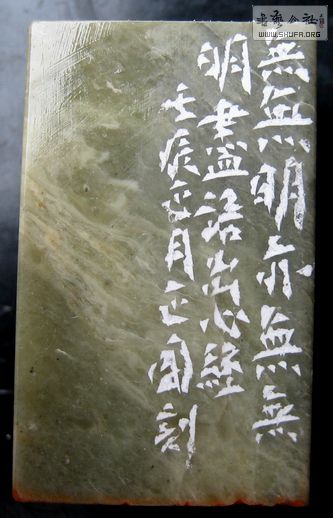 書藝公社
WWW.SHUFA.ORG
無無明亦無無
明盡語出心經
壬辰正月正刻